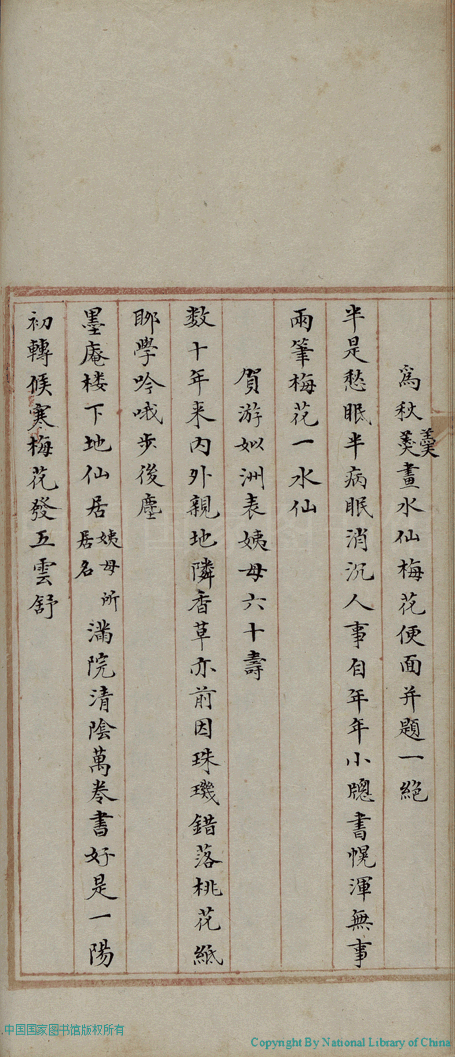 為秋羹畫水仙梅花便面并題一絕
羹
半是愁眠半病眠消沉人事自年年小牕書幌渾無事
兩筆梅花一水仙
賀游姒洲表姨母六十壽
数十年来內外親地隣香草亦前因珠璣錯落桃花紙
聊學吟哦步後塵
墨庵楼下地仙居姨母所居名滿院清陰萬卷書好是一陽
初轉候寒梅花發五雲舒
中国国家图书馆版权所有
Copyright By National Library of China